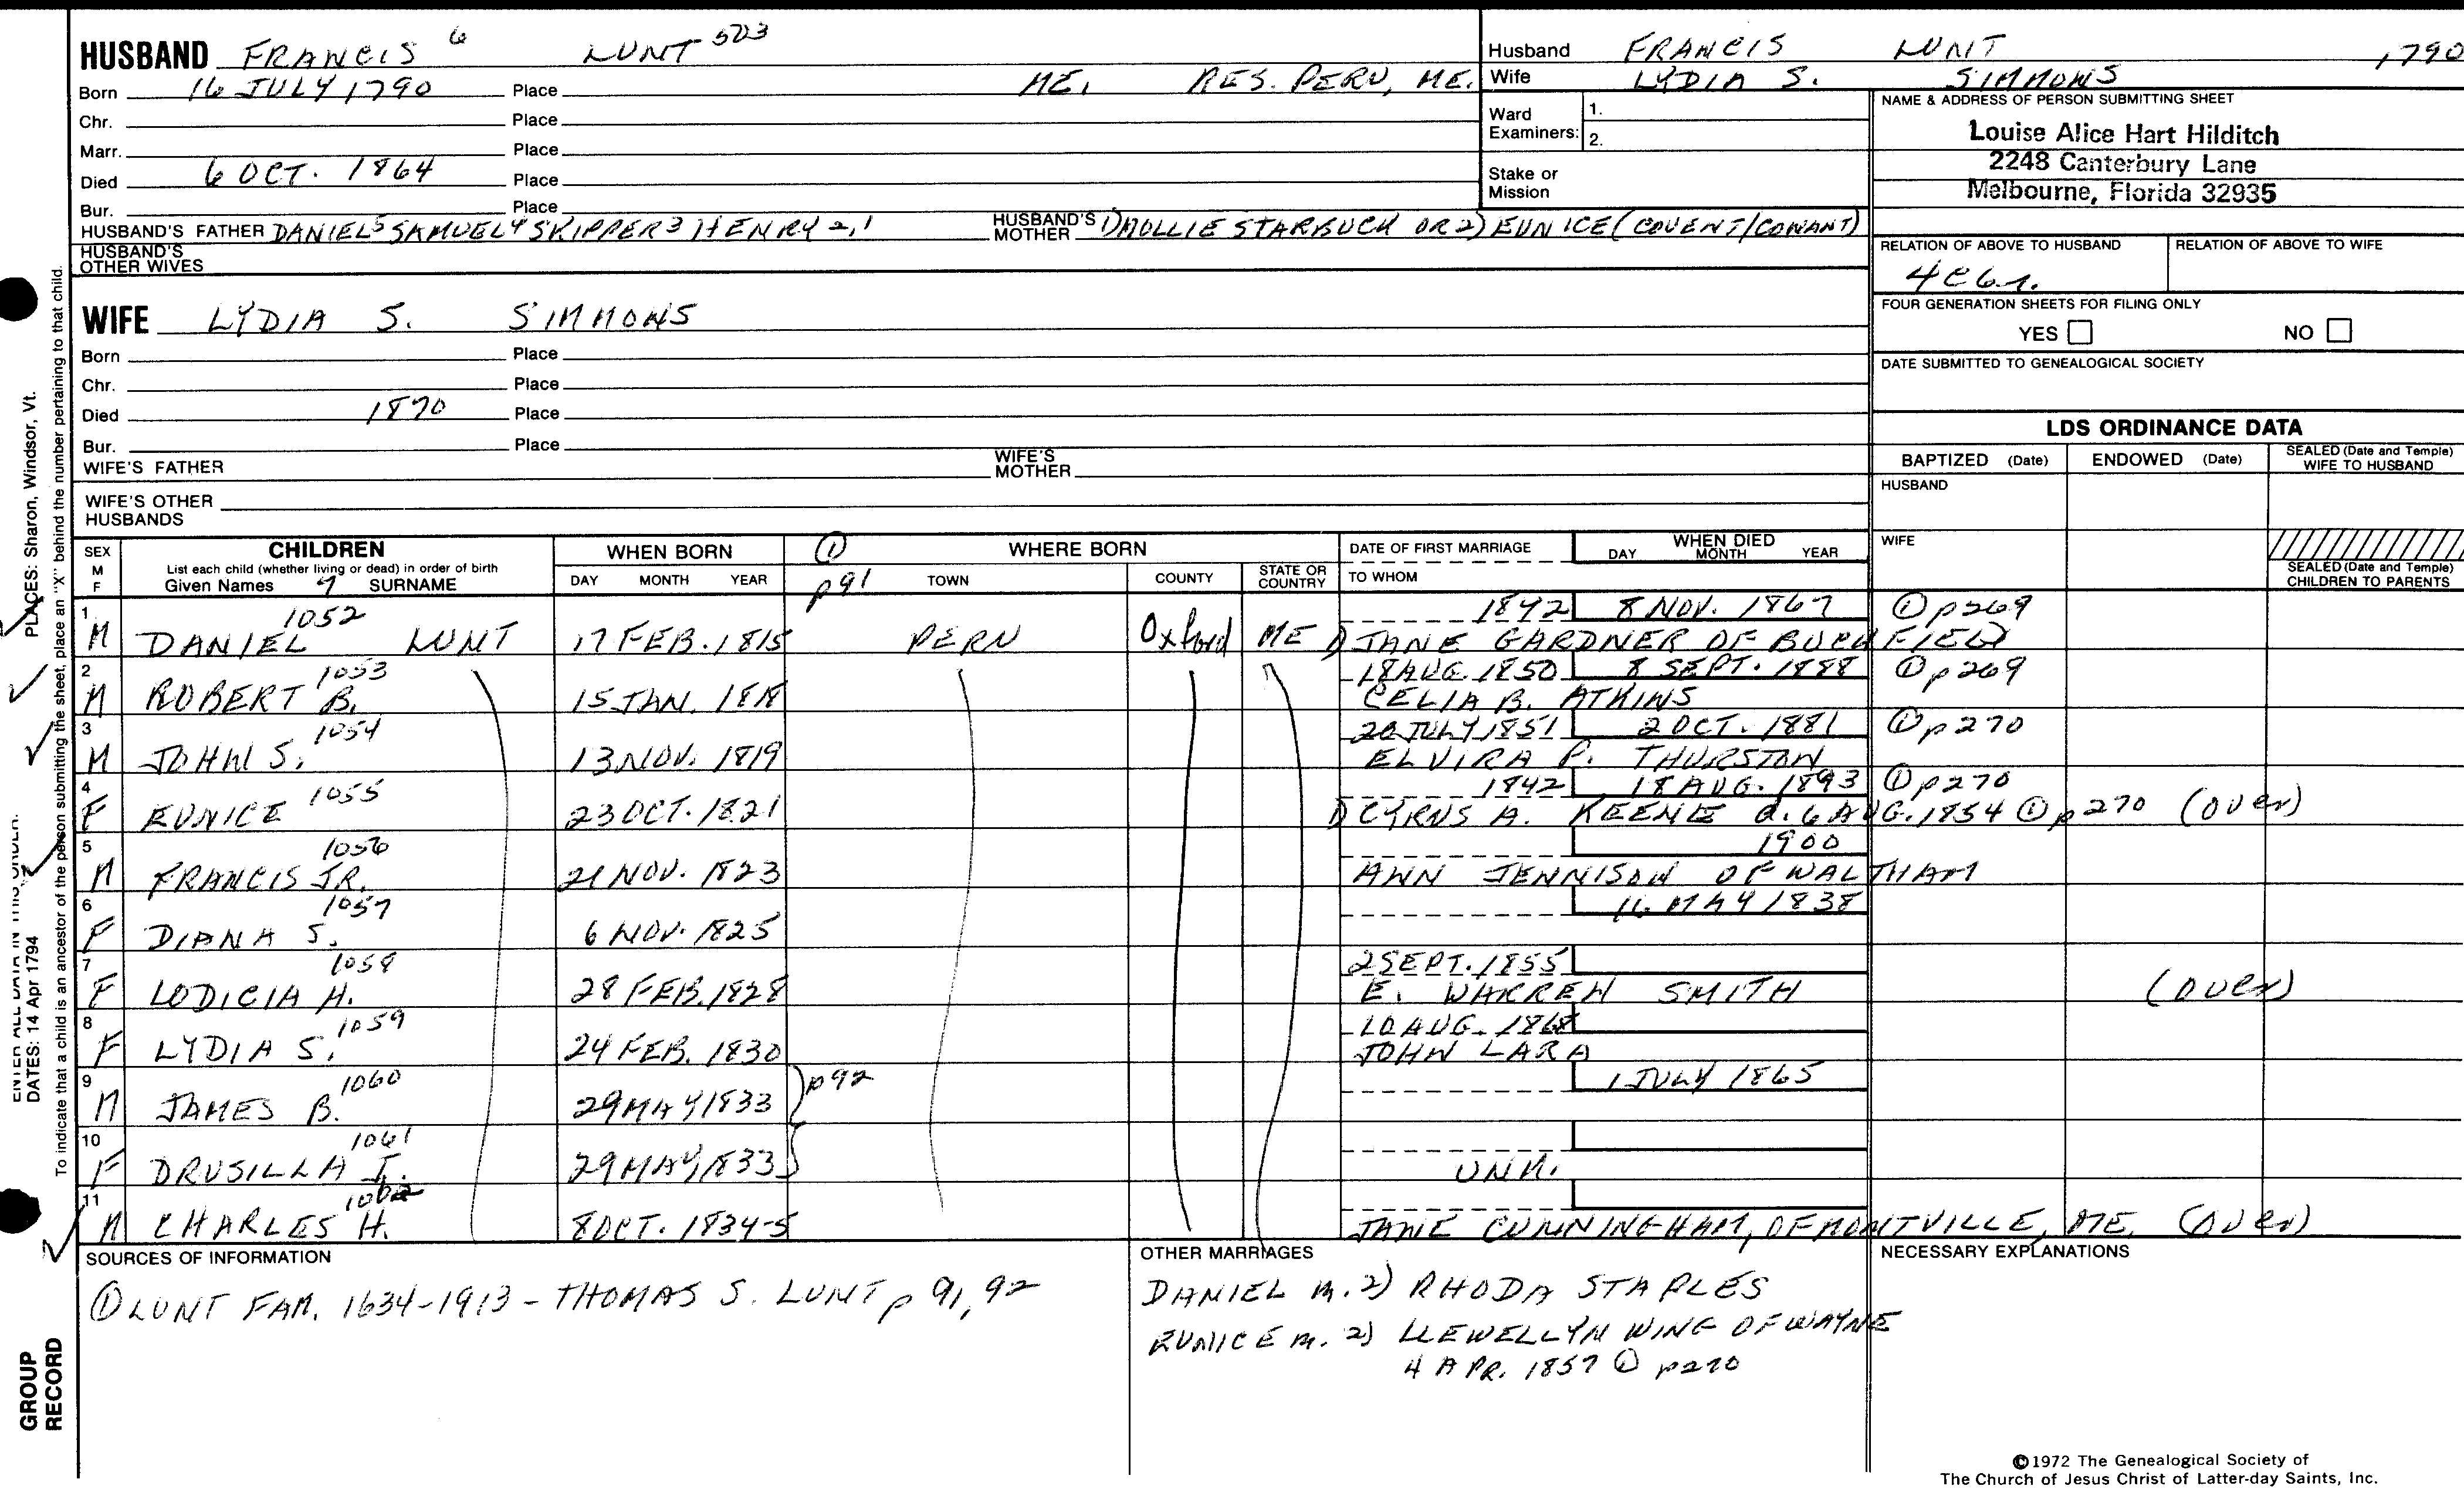 HUSBAND FRANCIS 6 LUNT 523
Born 16 JULY 1790 Place ME, RES. PERU, ME.
Chr. Place
Marr. Place
Died 6 OCT. 1864 Place
Bur. Place
HUSBAND'S FATHER DANIEL5 SAMUEL4 SKIPPER3 HENRY 2,1 HUSBAND'S MOTHER 1) MOLLIE STARBUCK OR 2) EUNICE (COVENT/CONANT)
HUSBAND'S OTHER WIVES
Husband FRANCIS LUNT 1790
Wife LYDIA S. SIMMONS
Ward Examiners: 1.
2.
Stake or Mission
NAME & ADDRESS OF PERSON SUBMITTING SHEET
Louise Alice Hart Hilditch
2248 Canterbury Lane
Melbourne, Florida 32935
RELATION OF ABOVE TO HUSBAND RELATION OF ABOVE TO WIFE
4C6r.
FOUR GENERATION SHEETS FOR FILING ONLY
YES NO
DATE SUBMITTED TO GENEALOGICAL SOCIETY
WIFE LYDIA S. SIMMONS
Born Place
Chr. Place
Died 1870 Place
Bur. Place
WIFE'S FATHER WIFE'S MOTHER
WIFE'S OTHER HUSBANDS
LDS ORDINANCE DATA
BAPTIZED (Date) ENDOWED (Date) SEALED (Date and Temple) WIFE TO HUSBAND
HUSBAND
WIFE
SEALED (Date and Temple) CHILDREN TO PARENTS
SEX M F
CHILDREN
List each child (whether living or dead) in order of birth
Given Names 7 SURNAME
WHEN BORN
DAY MONTH YEAR
① p91
WHERE BORN
TOWN COUNTY STATE OR COUNTRY
DATE OF FIRST MARRIAGE
TO WHOM
WHEN DIED
DAY MONTH YEAR
1 1052 1842 8 NOV. 1867 ① p269
M DANIEL LUNT 17 FEB. 1815 PERU Oxford ME 1) JANE GARDNER OF BUCKFIELD
2 1053 18 AUG. 1850 8 SEPT. 1888 ① p269
M ROBERT B. 15 JAN. 1818 CELIA B. ATKINS
3 1054 20 JULY 1851 2 OCT. 1881 ① p270
M JOHN S. 13 NOV. 1819 ELVIRA P. THURSTON
4 1055 1842 18 AUG. 1893 ① p270
F EUNICE 23 OCT. 1821 1) CYRUS A. KEENE d. 6 AUG. 1854 ① p270 (over)
5 1056 1900
M FRANCIS JR. 21 NOV. 1823 ANN JENNISON OF WALTHAM
6 1057 16 MAY 1838
F DIANA S. 6 NOV. 1825
7 1058 2 SEPT. 1855
F LODICIA H. 28 FEB. 1828 E. WARREN SMITH (over)
8 1059 10 AUG. 1868
F LYDIA S. 24 FEB. 1830 JOHN LARA
9 1060 p92 1 JULY 1865
M JAMES B. 29 MAY 1833
10 1061
F DRUSILLA T. 29 MAY 1833 UNM.
11 1062
M CHARLES H. 8 OCT. 1834-5 JANE CUNNINGHAM, OF MONTVILLE, ME. (over)
SOURCES OF INFORMATION
① LUNT FAM. 1634-1913 - THOMAS S. LUNT p 91, 92
OTHER MARRIAGES
DANIEL m. 2) RHODA STAPLES
EUNICE m. 2) LLEWELLYN WING OF WAYNE
4 APR. 1857 ① p270
NECESSARY EXPLANATIONS
©1972 The Genealogical Society of
The Church of Jesus Christ of Latter-day Saints, Inc.
PLACES: Sharon, Windsor, Vt.
ENTER ALL DATA IN THIS ORDER:
DATES: 14 Apr 1794
To indicate that a child is an ancestor of the person submitting the sheet, place an "X" behind the number pertaining to that child.
GROUP
RECORD